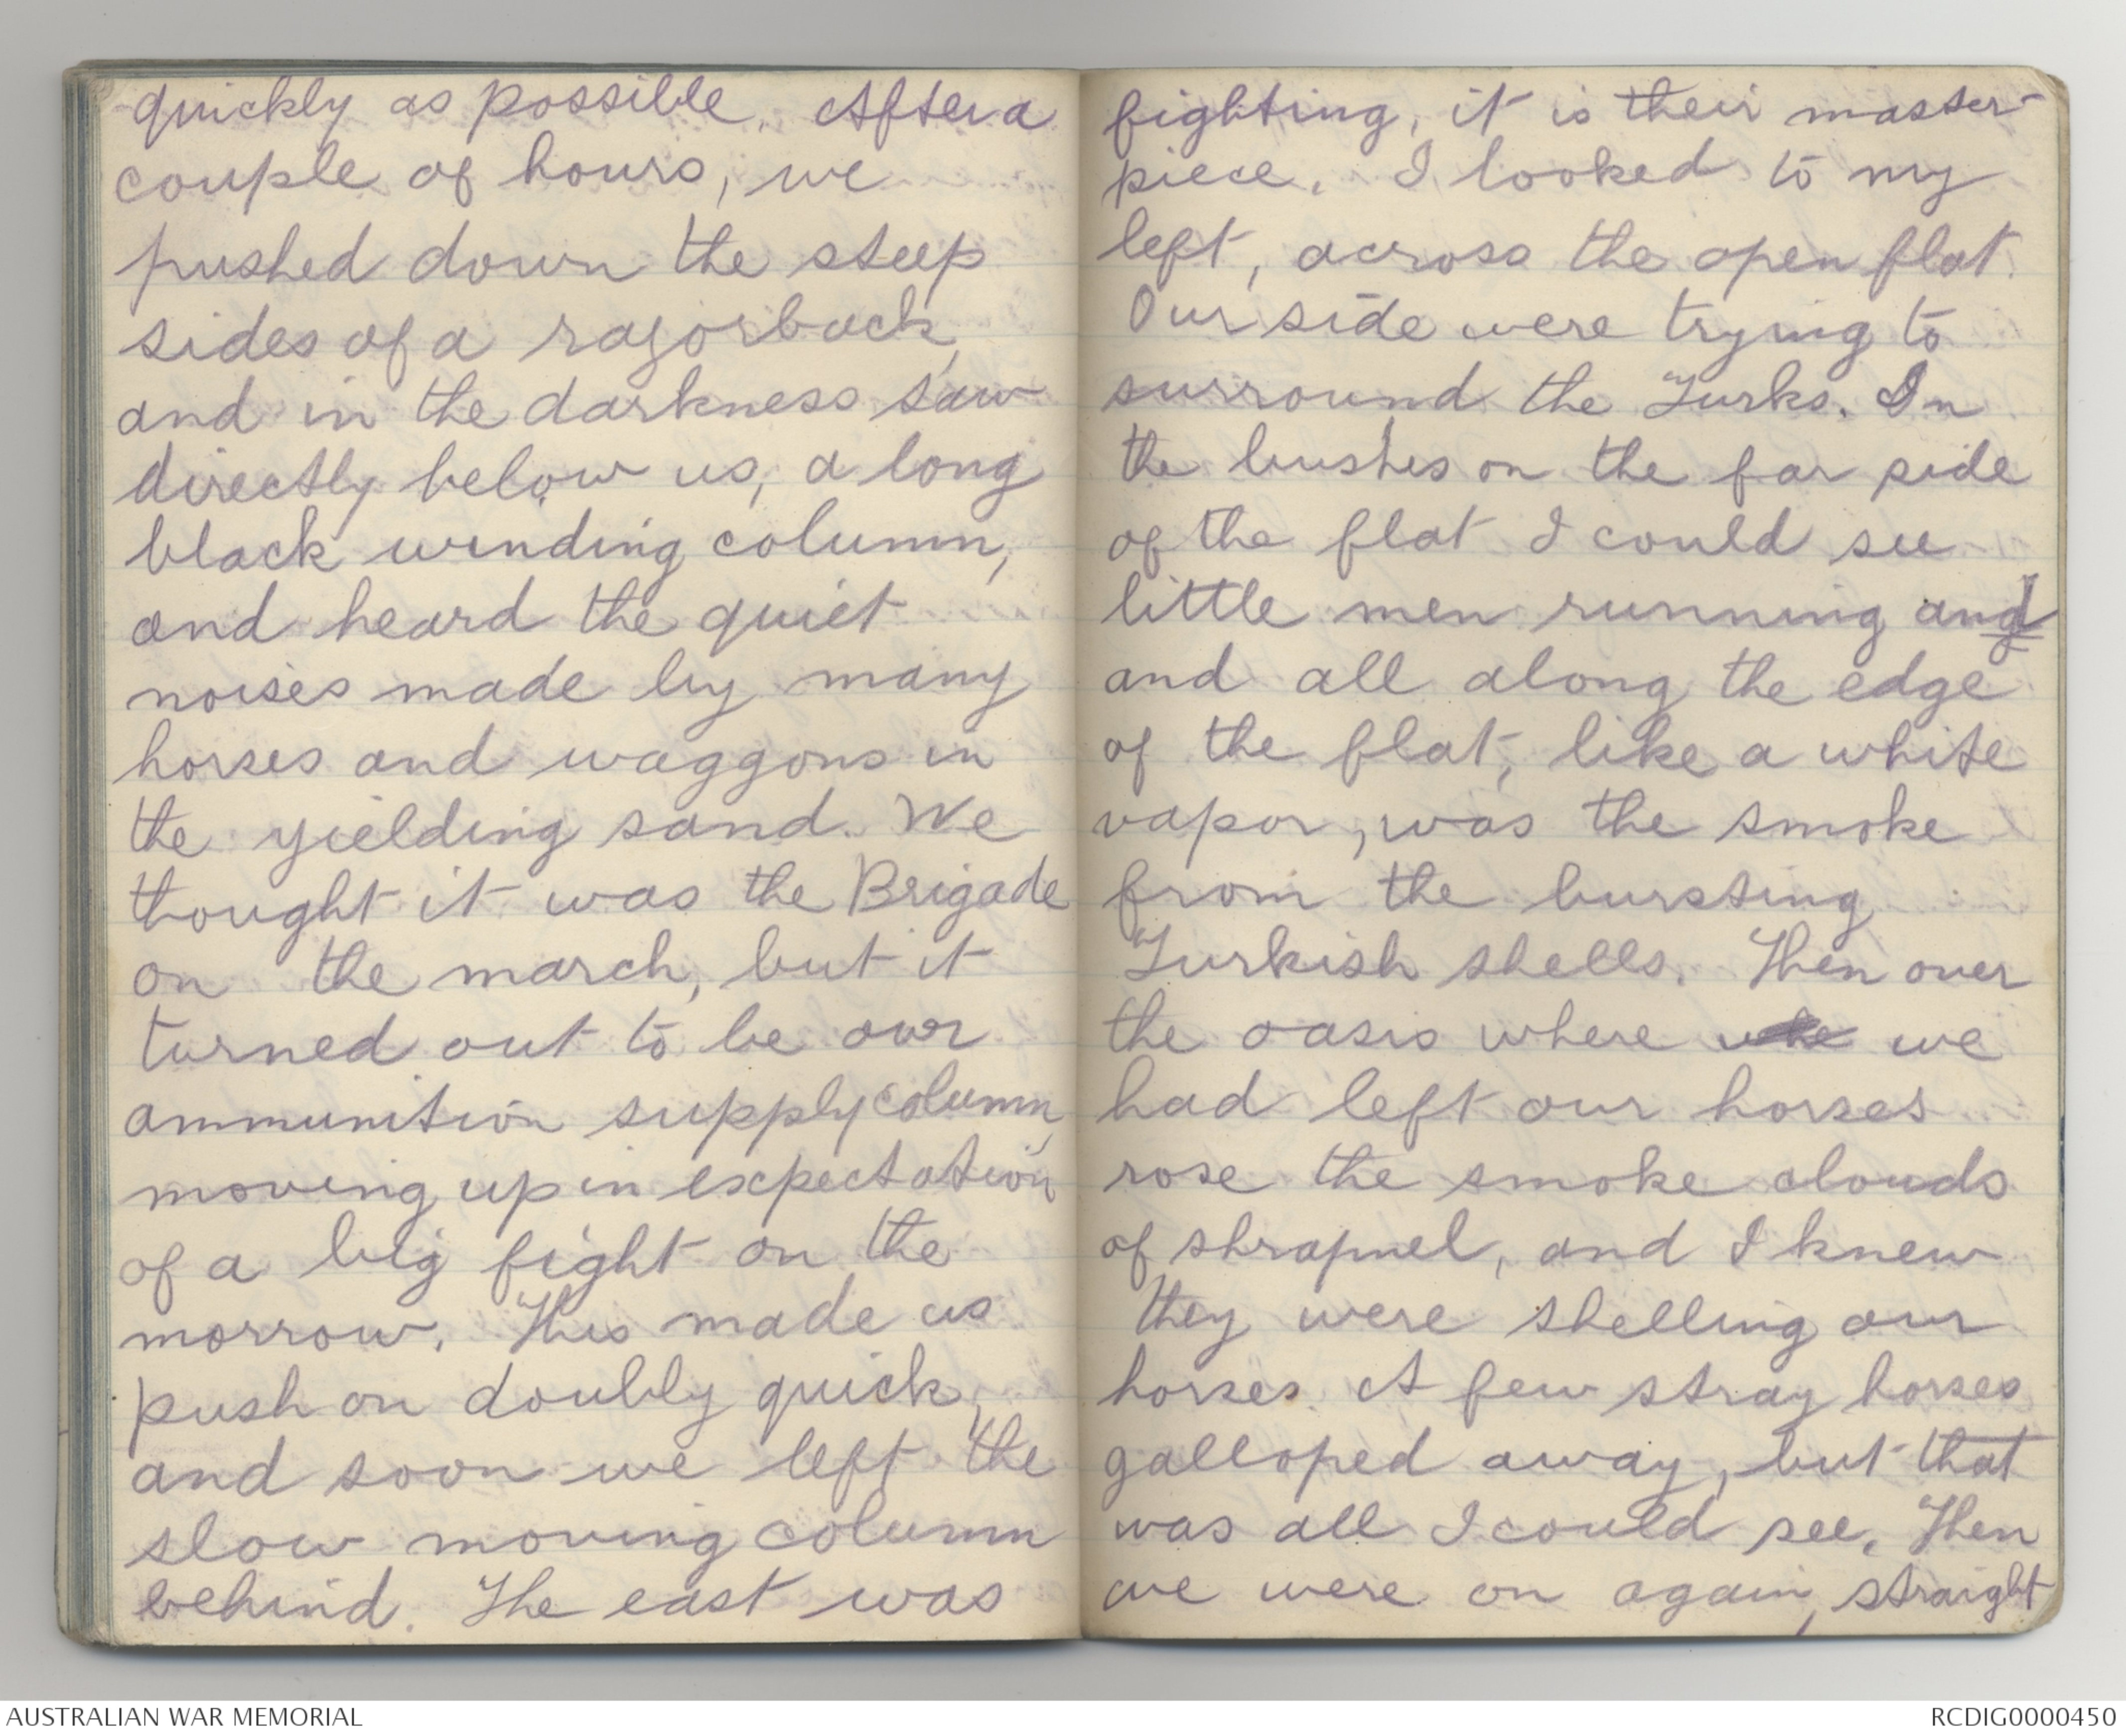 quickly as possible. After a
couple of hours, we
pushed down the steep
sides of a razorback,
and in the darkness saw
directly below us, a long
black winding column,
and heard the quiet
noises made by many
horses and waggons in
the yielding sand. We
thought it was the Brigade
on the march, but it
turned out to be our
ammunition supply column,
moving up in expectation
of a big fight on the
morrow. This made us
push on doubly quick,
and soon we left the
slow moving column
behind. The east was
fighting, it is their master-
piece. I looked to my
left, across the open flat.
Our side were trying to
surround the Turks. In
the bushes on the far side
of the flat I could see
little men running and
and all along the edge
of the flat, like a white
vapor, was the smoke
from the bursting
Turkish shells. Then over
the oasis where we
had left our horses
rose the smoke clouds
of shrapnel, and I knew
they were shelling our
horses. A few stray horses
galloped away, but that
was all I could see. Then
we were on again, straight
AUSTRALIAN WAR MEMORIAL
RCDIG0000450